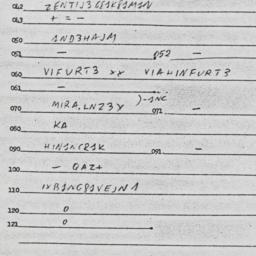 042 ZENTIJ3G81K81M1N
043 + = -
050 1ND3HAJM
051 - 052 -
060 VIFURT3 xx VIAHINFURT3
061 -
070 MIRA, LNZ3Y )-1NC 071 -
080 KA
090 HIN1NCR1K 091 -
100 - QAZ+
110 IXB1NG81VEJN1
120 0
121 0